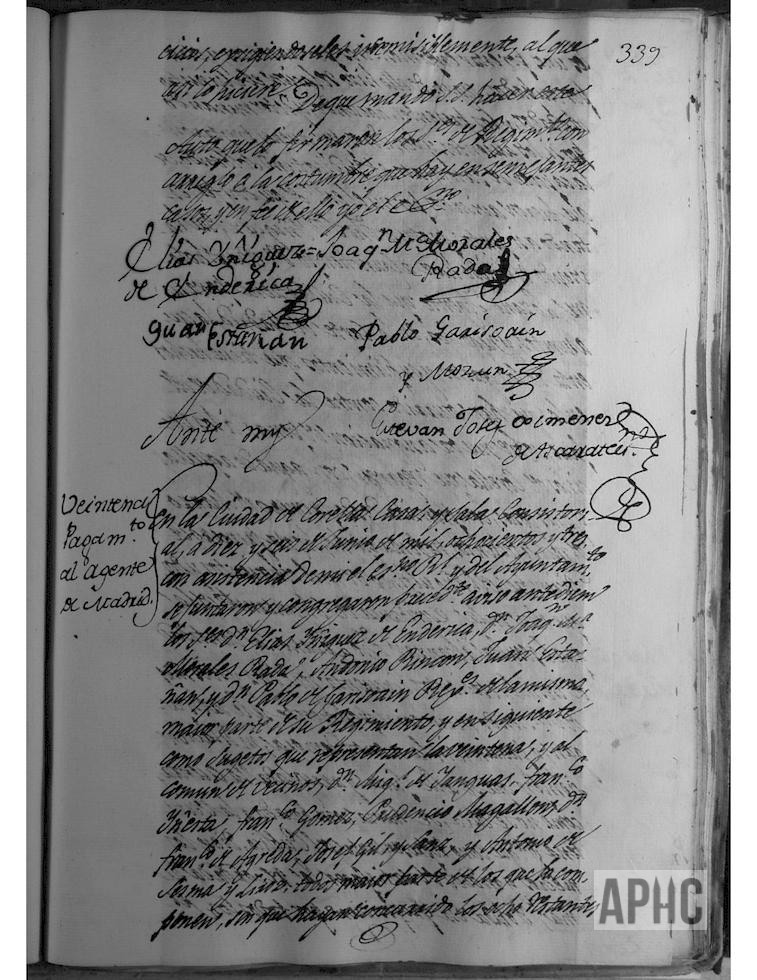 339
cicios, exigiendoseles irremisiblemente, al que
asi lo hiciere. De que mando S.S. hacer este
Auto, que lo firmaron los S.res de Regim.to con
arreglo a la costumbre que hay en semejantes
casos, y en fee de ello yo el Es.no
Elias Yñiguez = Joaq.n M.a Morales
de Enderica Rada
Juan Estañan Pablo Garisoain
y Morun
Ante my Estevan Josef Ximenez
de Azcarate es.no
Veintena
Pagam.to
al Agente
de Madrid.
En la Ciudad de Corella, Casas, y Salas Consistori-
al, a diez y seis de Junio de mil ochocientos y tres,
con asistencia de mi el es.no R.l y del Ayuntam.to
se juntaron y congregaron preced.te aviso ante diem
los ser.s d.n Elias Yñiguez de Enderica, d.n Joaq.n M.a
Morales Rada, Antonio Rincon, Juan Esta-
ñan, y d.n Pablo de Garisoain Reg.es de la misma,
maior parte de su Regimiento, y en siguiente
como Sugetos que representan la veintena, y al
comun de vecinos, d.n Mig.l de Yanguas, Fran.co
Yñerta, fran.co Gomez, Prudencio Magallon, d.n
fran.co de Agreda, Josef Gil y Sanz, y Antonio de
Sesma y Liso, todos maior parte de los que la com-
ponen, sin que hayan concurrido los ocho restantes,
APHC